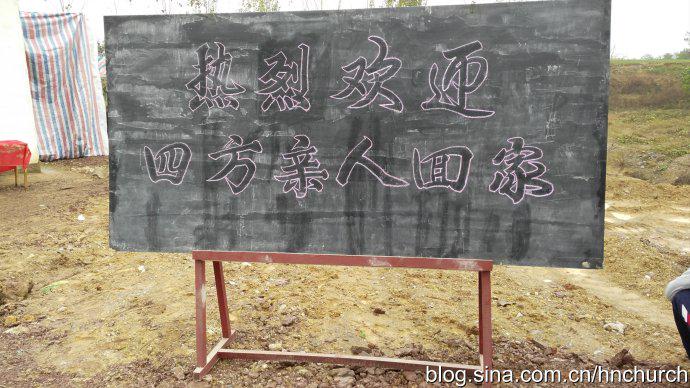 热烈欢迎
四方亲人回家
blog.sina.com.cn/hnchurch